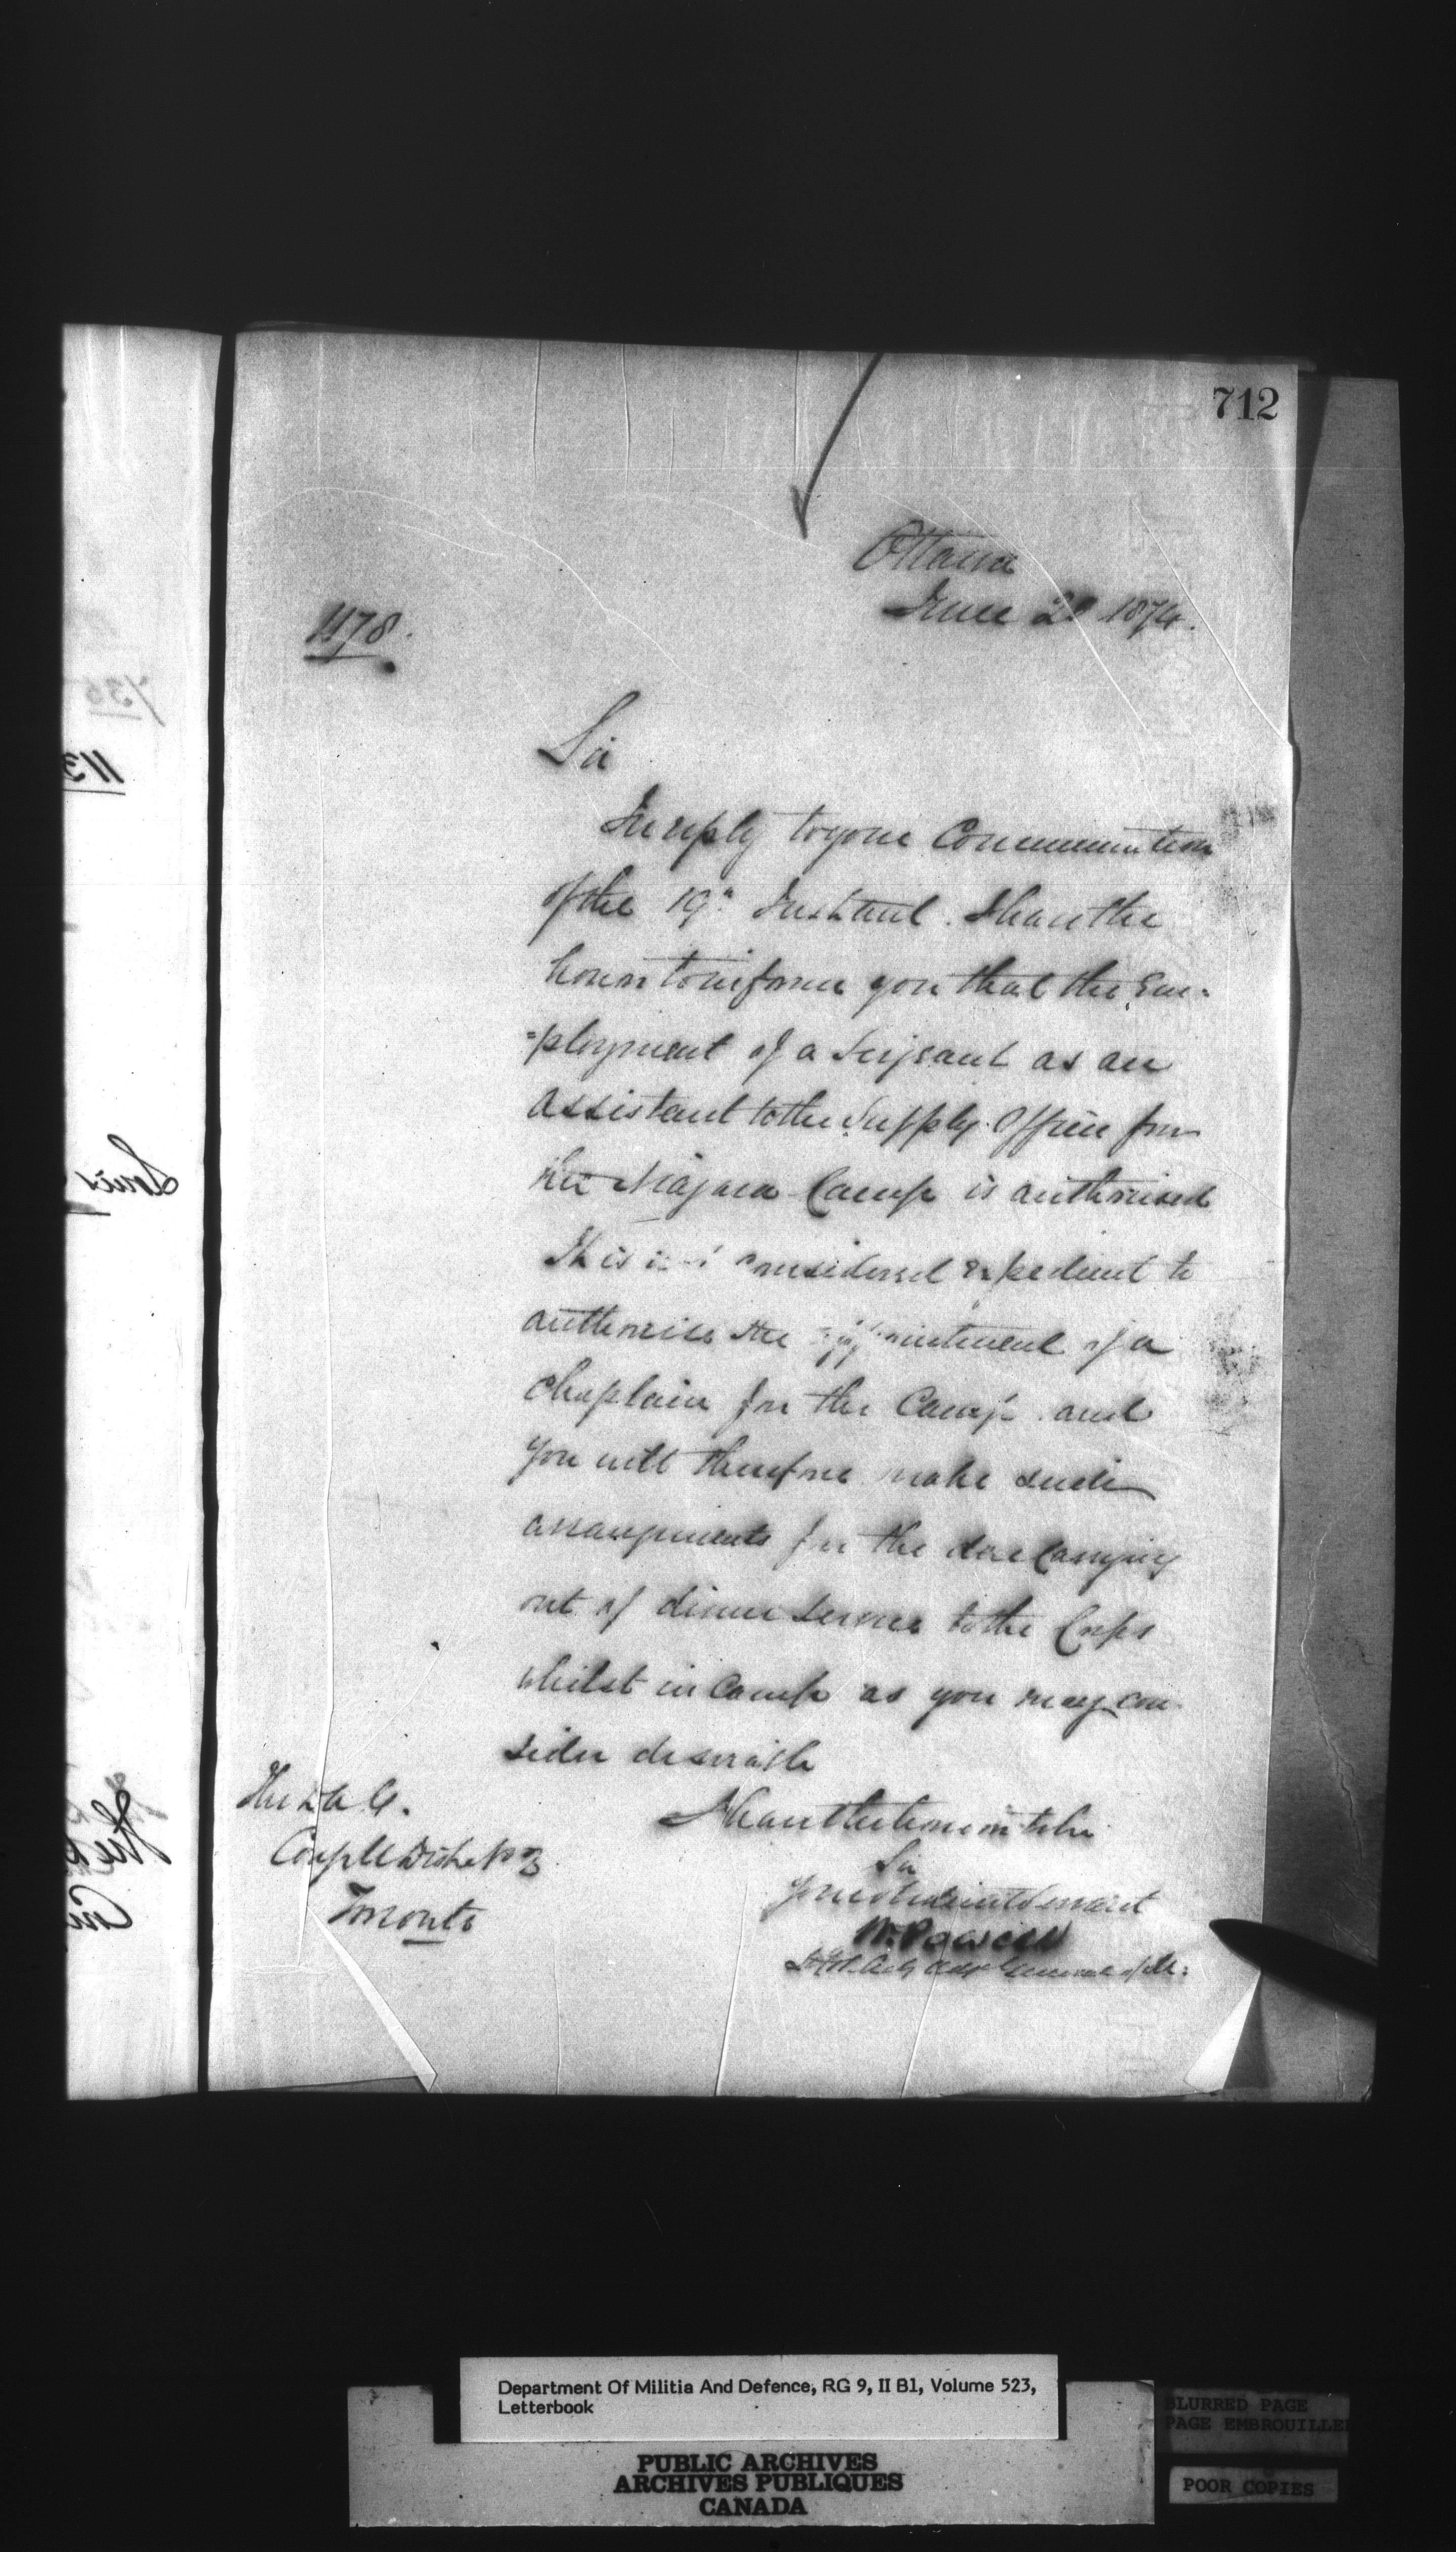 712
Ottawa
June 20 1874.
1178.
Sir
In reply to your Communication
of the 19th Instant. I have the
honor to inform you that the Em-
-ployment of a Serjeant as an
assistant to the Supply Officer for
the Niagara Camp is authorised
It is not considered expedient to
authorise the appointment of a
chaplain for the Camp and
you will therefore make such
arrangements for the due Carrying
out of divine service to the Corps
whilst in Camp as you may con-
sider desirable
I have the honor to be
Sir
your obedient Servant
W. Powell
Lt Col. Actg Adjt General of M:
The D A G.
Comg Mil Dist No 2
Toronto
Department Of Militia And Defence, RG 9, II B1, Volume 523,
Letterbook
PUBLIC ARCHIVES
ARCHIVES PUBLIQUES
CANADA
BLURRED PAGE
PAGE EMBROUILLEE
POOR COPIES